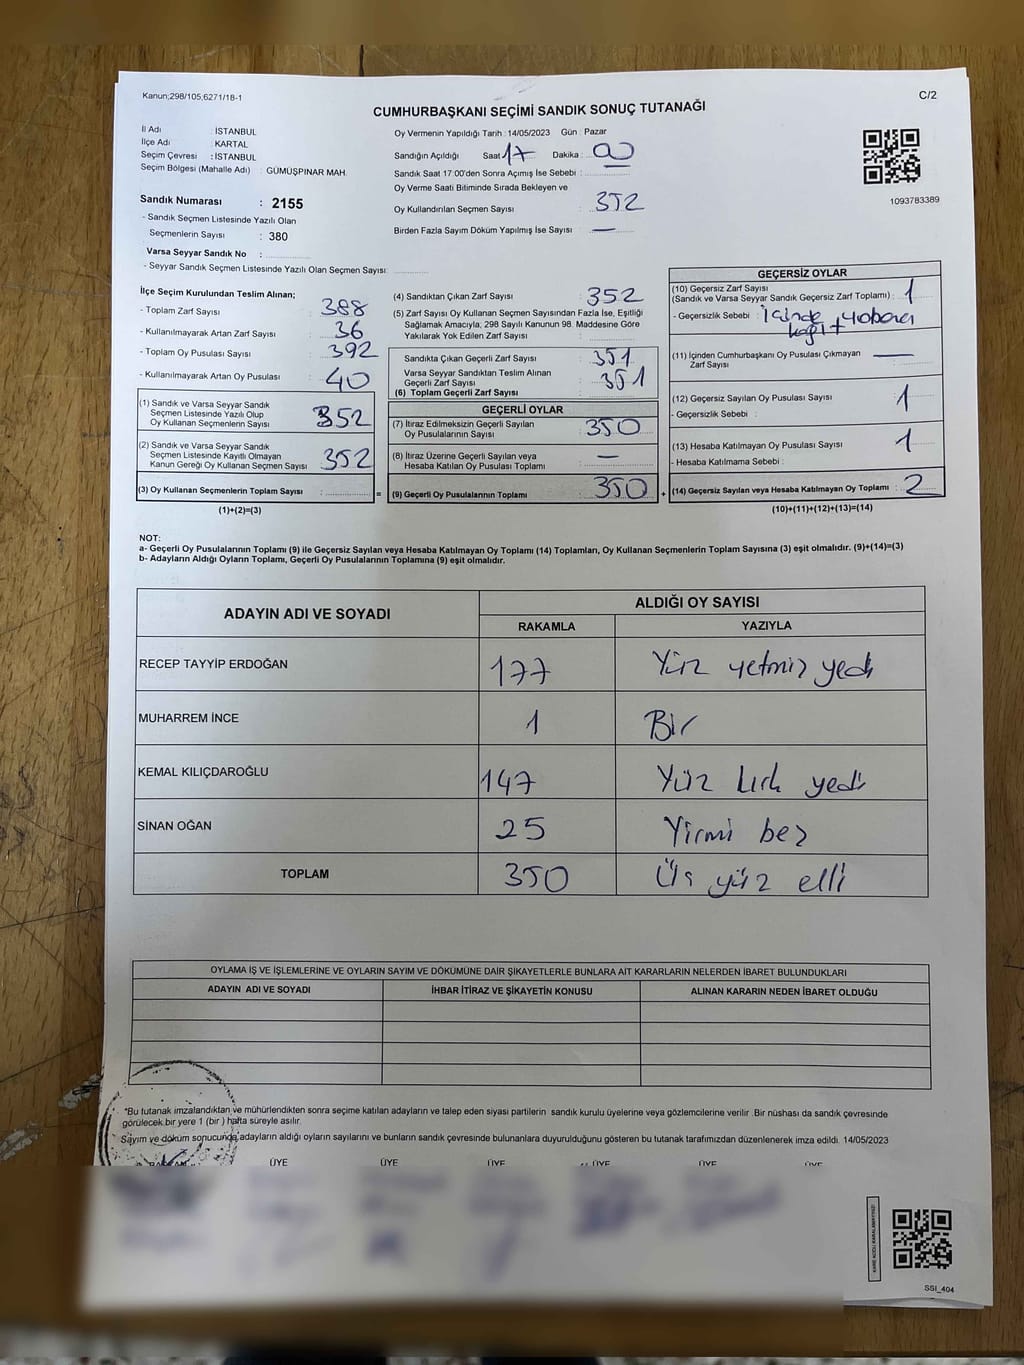 Kanun;298/105,6271/18-1
C/2
CUMHURBAŞKANI SEÇİMİ SANDIK SONUÇ TUTANAĞI
İl Adı : İSTANBUL
İlçe Adı : KARTAL
Seçim Çevresi : İSTANBUL
Seçim Bölgesi (Mahalle Adı) : GÜMÜŞPINAR MAH.
Sandık Numarası : 2155
- Sandık Seçmen Listesinde Yazılı Olan
Seçmenlerin Sayısı : 380
Varsa Seyyar Sandık No :
- Seyyar Sandık Seçmen Listesinde Yazılı Olan Seçmen Sayısı:
Oy Vermenin Yapıldığı Tarih : 14/05/2023 Gün : Pazar
Sandığın Açıldığı Saat : 17 Dakika : 00
Sandık Saat 17:00'den Sonra Açımış İse Sebebi :
Oy Verme Saati Bitiminde Sırada Bekleyen ve
Oy Kullandırılan Seçmen Sayısı : 352
Birden Fazla Sayım Döküm Yapılmış İse Sayısı : —
1093783389
İlçe Seçim Kurulundan Teslim Alınan;
- Toplam Zarf Sayısı : 388
- Kullanılmayarak Artan Zarf Sayısı : 36
- Toplam Oy Pusulası Sayısı : 392
- Kullanılmayarak Artan Oy Pusulası : 40
(1) Sandık ve Varsa Seyyar Sandık
Seçmen Listesinde Yazılı Olup
Oy Kullanan Seçmenlerin Sayısı : 352
(2) Sandık ve Varsa Seyyar Sandık
Seçmen Listesinde Kayıtlı Olmayan
Kanun Gereği Oy Kullanan Seçmen Sayısı : 352
(3) Oy Kullanan Seçmenlerin Toplam Sayısı :
(1)+(2)=(3)
(4) Sandıktan Çıkan Zarf Sayısı : 352
(5) Zarf Sayısı Oy Kullanan Seçmen Sayısından Fazla İse, Eşitliği
Sağlamak Amacıyla, 298 Sayılı Kanunun 98. Maddesine Göre
Yakılarak Yok Edilen Zarf Sayısı :
Sandıkta Çıkan Geçerli Zarf Sayısı : 351
Varsa Seyyar Sandıktan Teslim Alınan
Geçerli Zarf Sayısı : 351
(6) Toplam Geçerli Zarf Sayısı
GEÇERLİ OYLAR
(7) İtiraz Edilmeksizin Geçerli Sayılan
Oy Pusulalarının Sayısı : 350
(8) İtiraz Üzerine Geçerli Sayılan veya
Hesaba Katılan Oy Pusulası Toplamı : —
= (9) Geçerli Oy Pusulalarının Toplamı : 350
GEÇERSİZ OYLAR
(10) Geçersiz Zarf Sayısı
(Sandık ve Varsa Seyyar Sandık Geçersiz Zarf Toplamı) : 1
- Geçersizlik Sebebi : İçinde yabancı
kağıt
(11) İçinden Cumhurbaşkanı Oy Pusulası Çıkmayan
Zarf Sayısı : —
(12) Geçersiz Sayılan Oy Pusulası Sayısı : 1
- Geçersizlik Sebebi :
(13) Hesaba Katılmayan Oy Pusulası Sayısı : 1
- Hesaba Katılmama Sebebi :
+ (14) Geçersiz Sayılan veya Hesaba Katılmayan Oy Toplamı : 2
(10)+(11)+(12)+(13)=(14)
NOT:
a- Geçerli Oy Pusulalarının Toplamı (9) ile Geçersiz Sayılan veya Hesaba Katılmayan Oy Toplamı (14) Toplamları, Oy Kullanan Seçmenlerin Toplam Sayısına (3) eşit olmalıdır. (9)+(14)=(3)
b- Adayların Aldığı Oyların Toplamı, Geçerli Oy Pusulalarının Toplamına (9) eşit olmalıdır.
ADAYIN ADI VE SOYADI ALDIĞI OY SAYISI
RAKAMLA YAZIYLA
RECEP TAYYİP ERDOĞAN 177 Yüz yetmiş yedi
MUHARREM İNCE 1 Bir
KEMAL KILIÇDAROĞLU 147 Yüz kırk yedi
SİNAN OĞAN 25 Yirmi beş
TOPLAM 350 Üç yüz elli
OYLAMA İŞ VE İŞLEMLERİNE VE OYLARIN SAYIM VE DÖKÜMÜNE DAİR ŞİKAYETLERLE BUNLARA AİT KARARLARIN NELERDEN İBARET BULUNDUKLARI
ADAYIN ADI VE SOYADI İHBAR İTİRAZ VE ŞİKAYETİN KONUSU ALINAN KARARIN NEDEN İBARET OLDUĞU
*Bu tutanak imzalandıktan ve mühürlendikten sonra seçime katılan adayların ve talep eden siyasi partilerin sandık kurulu üyelerine veya gözlemcilerine verilir .Bir nüshası da sandık çevresinde
görülecek bir yere 1 (bir ) hafta süreyle asılır.
Sayım ve döküm sonucunda adayların aldığı oyların sayılarını ve bunların sandık çevresinde bulunanlara duyurulduğunu gösteren bu tutanak tarafımızdan düzenlenerek imza edildi. 14/05/2023
BAŞKAN ÜYE ÜYE ÜYE ÜYE ÜYE ÜYE
KARE KODU KARALAMAYINIZ!
SSI_404